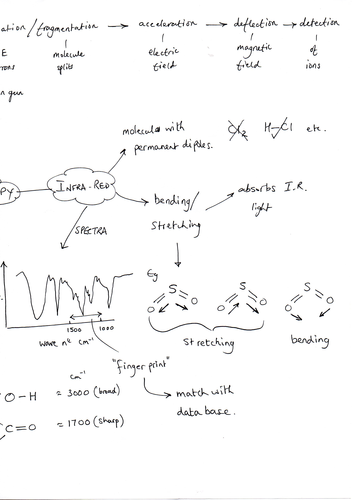 ation/fragmentation → acceleration → deflection → detection
E molecule electric magnetic of
rons splits field field ions
n gun
molecules with
permanent dipoles.
Cl2 H-Cl etc.
PY
INFRA-RED
bending/
stretching
absorbs I.R.
light
SPECTRA
Eg
S S S
O O O O O O
1500 1000
wave nº cm⁻¹
stretching
bending
"fingerprint"
match with
data base.
cm⁻¹
O-H = 3000 (broad)
C=O = 1700 (sharp)